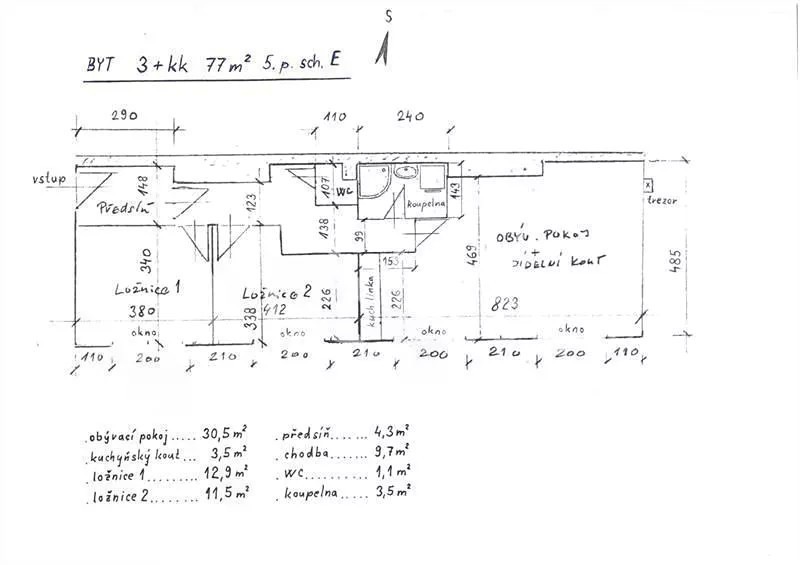 S
BYT 3+kk 77m² 5.p. sch. E
290
110
240
vstup
148
107
WC
143
koupelna
x
trezor
Předsíň
123
138
99
OBÝV. POKOJ
+
JÍDELNÍ KOUT
469
485
340
153
Ložnice 1
Ložnice 2
226
kuch linka
226
380
412
823
338
okno
okno
okno
okno
110
200
210
200
210
200
210
200
110
.obývací pokoj ..... 30,5 m²
.kuchyňský kout ... 3,5 m²
.ložnice 1 .......... 12,9 m²
.ložnice 2 ........ 11,5 m²
.předsíň ....... 4,3 m²
.chodba ........ 9,7 m²
.WC ............ 1,1 m²
.koupelna ..... 3,5 m²